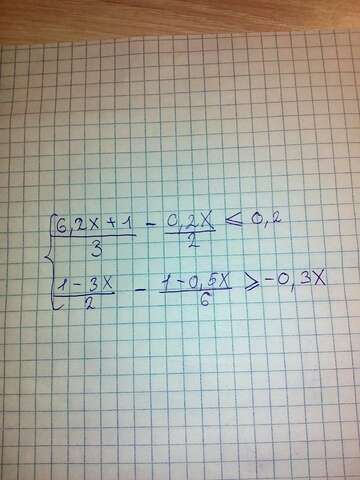 { (6,2x+1)/3 - (0,2x)/2 ⩽ 0,2
(1-3x)/2 - (1-0,5x)/6 ⩾ -0,3x